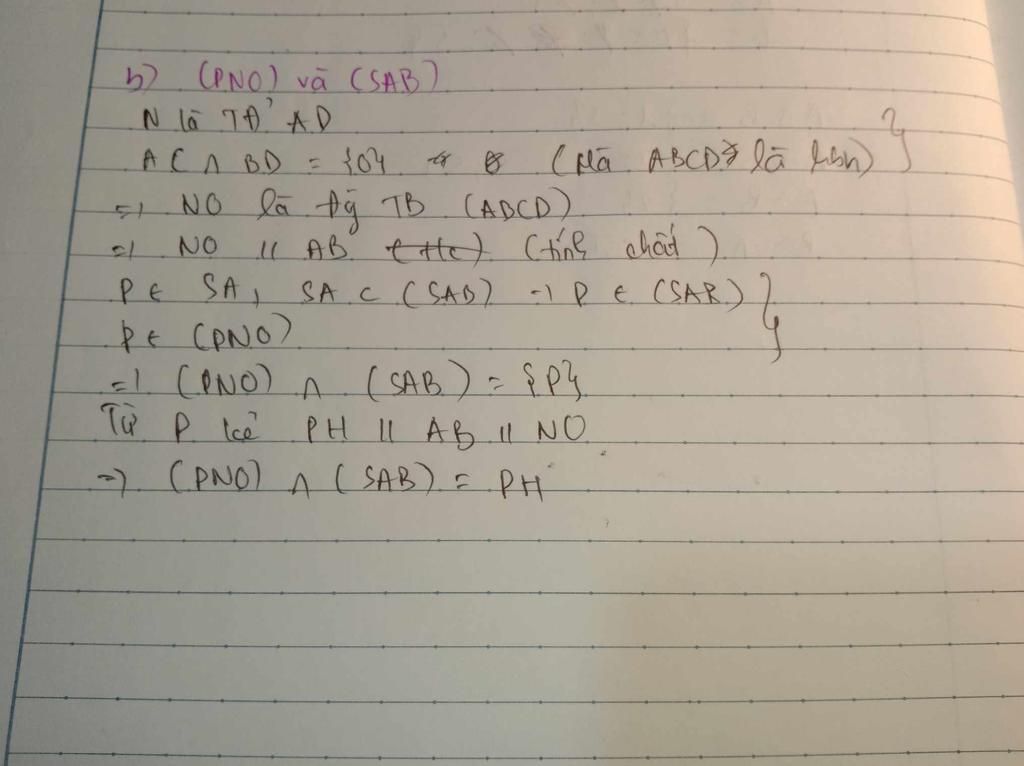 b) (PNO) và (SAB)
N là TĐ' AD
AC ∩ BD = {O} (Mà ABCD là hbh) }
=> NO là đg TB (ABCD)
=> NO // AB (tính chất)
P ∈ SA, SA ⊂ (SAB) -> P ∈ (SAB) }
P ∈ (PNO)
=> (PNO) ∩ (SAB) = {P}
Từ P kẻ PH // AB // NO
=> (PNO) ∩ (SAB) = PH